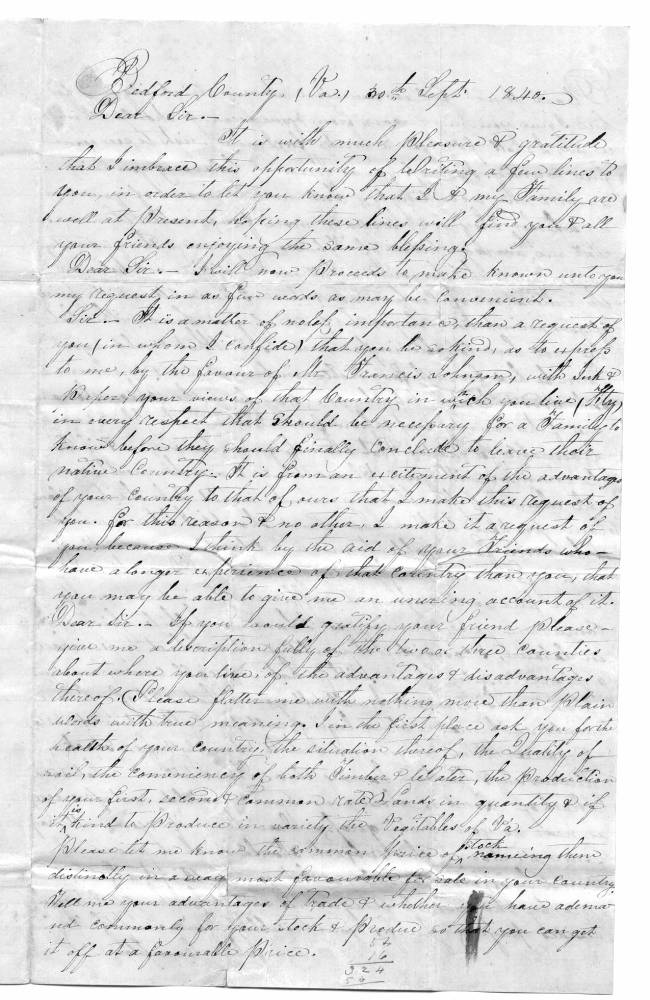 Bedford County, (Va.) 30th Sept. 1840.
Dear Sir.-
It is with much pleasure & gratitude
that I imbrace this oppertunity of Writing a few lines to
you, in order to let you know that I & my Family are
well at present, hoping these lines will find you & all
your friends enjoying the same blessing.
Dear Sir.- I will now proceeds to make known unto you
my request, in as few words as may be convenient.
Sir.- It is a matter of no less importance, than a request of
you (in whom I confide) that you be so kind, as to express
to me, by the favour of Mr Francis Johnson, with Ink &
Paper, your views of that Country in which you live,
in every respect that should be necessary for a Family to
know before they should finally conclude to leave their
native Country. It is from an excitement of the advantage
of your Country to that of ours that I make this request of
you. for this reason & no other, I make it a request of
you, because I think by the aid of your Friends who-
have a longer experience of that Country than you, that
you may be able to give me an unering account of it.
Dear Sir.- If you would gratify your friend please-
give me a description fully of the two or three Counties
about where you live, of the advantages & disadvantages
thereof. (Please flatter me with nothing more than plain
words with true meaning. I in the first place ask you for the
health of your Country, the situation thereof, the Quality of
soil, the conveniency of both Timber & Water, the production
of your first, second & common rate Lands in quantity & if
it is kind to produce in variety the Vegitables of Va.
Please let me know the common price of stock nameing them
distinctly in a way most favourable to sale in your Country.
Tell me your advantages of trade & whether you have a dema-
nd commonly for your stock & produce so that you can get
it off at a favourable price.
54
16
324
54